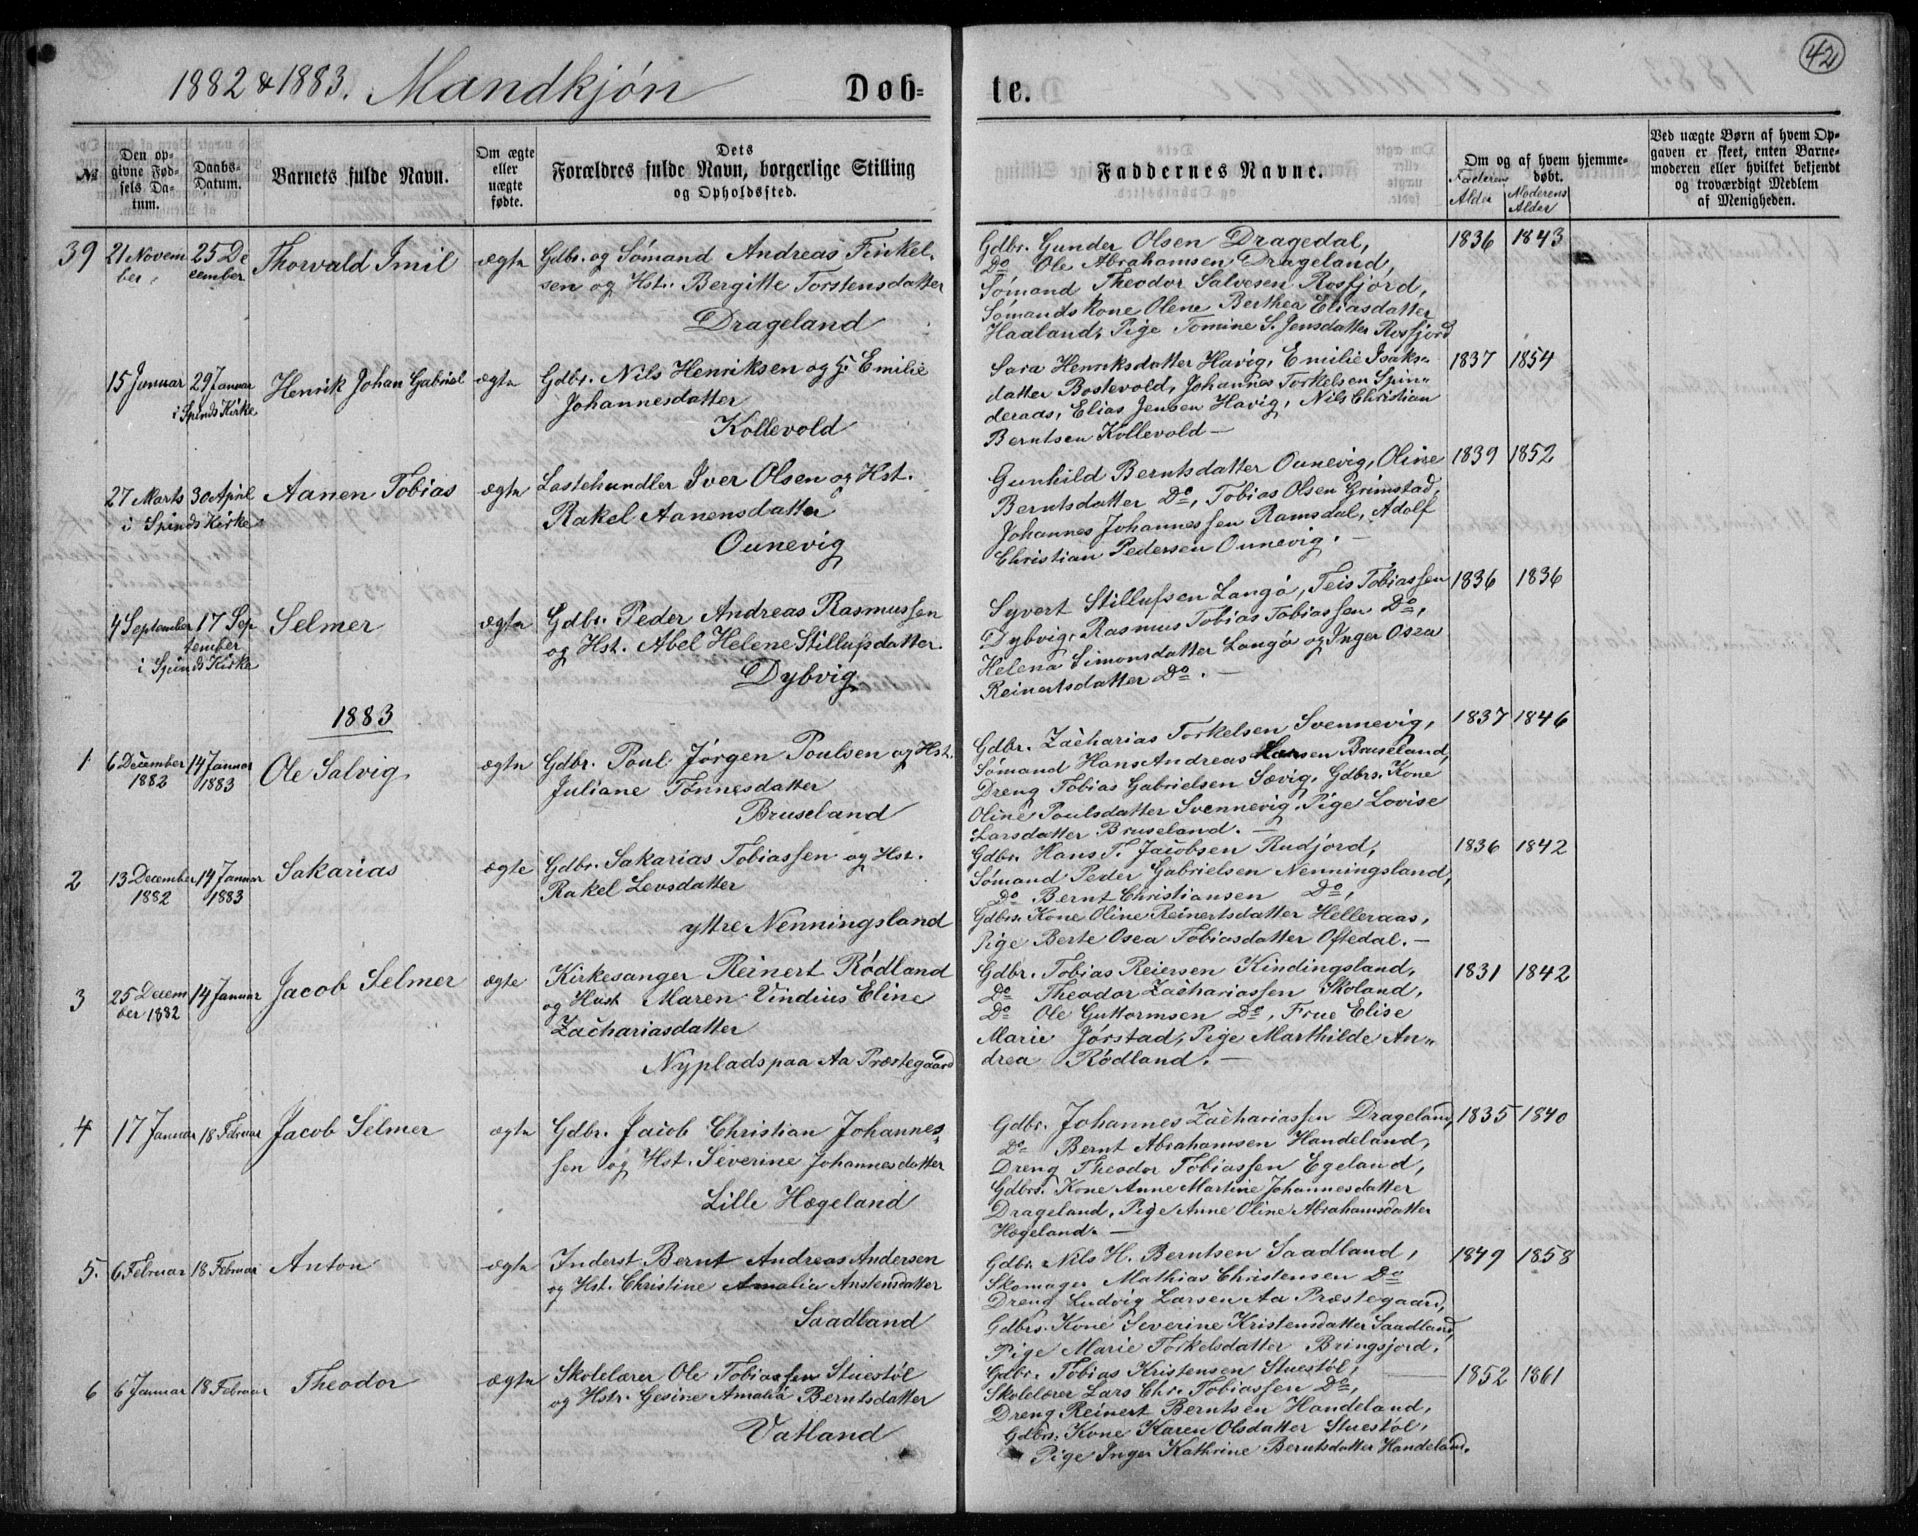 42
1882 & 1883. Mandkjøn Døb= te.
№
Den op-
givne Fød-
sels Da-
tum.
Daabs-
Datum.
Barnets fulde Navn.
Om ægte
eller
uægte
fødte.
Dets
Forældres fulde Navn, borgerlige Stilling
og Opholdssted.
Faddernes Navne.
Om og af hvem hjemme-
døbt.
Faderens
Alder
Moderens
Alder
Ved uægte Børn af hvem Op-
gaven er skeet, enten Barne-
moderen eller hvilket bekjendt
og troværdigt Medlem
af Menigheden.
39 21 Novem
ber
25 De
cember
Thorvald Imil
ægte
Gdbr. og Sømand Andreas Finkel-
sen og Hst. Bergitte Torstensdatter
Drageland
Gdbr. Gunder Olsen Dragedal,
Do Ole Abrahamsen Drageland,
Sømand Theodor Salvesen Rosfjord,
Sømands kone Olene Berthea Eliasdatter
Haaland, Pige Tomine S. Jensdatter Rosfjord
1836 1843
15 Januar
29 Januar
i Spinds Kirke
Henrik Johan Gabriel
ægte
Gdbr. Nils Henriksen og H. Emilie
Johannesdatter
Kollevold
Sara Henriksdatter Havig, Emilie Isaks-
datter Bostevold, Johannes Torkelsen Spin-
deraas, Elias Jensen Havig, Nils Christian
Berntsen Kollevold —
1837 1854
27 Marts 30 April
i Spinds Kirke
Aanen Tobias
ægte
Lastehandler Iver Olsen og Hst.
Rakel Aanensdatter
Ounevig
Gunhild Berntsdatter Ounevig, Oline
Berntsdatter Do, Tobias Olsen Grimstad,
Johannes Johannessen Ramsdal, Adolf
Christian Pedersen Ounevig. —
1839 1852
4 September 17 Sep
tember
i Spinds Kirke
Selmer
ægte
Gdbr. Peder Andreas Rasmussen
og Hst. Abel Helene Stillufsdatter
Dybvig
Syvert Stillufsen Langø, Teis Tobiassen
Dybvig, Rasmus Tobias Tobiassen Do,
Helena Simonsdatter Langø og Inger Osea
Reinertsdatter Do. —
1836 1836
1883
1 6 December
1882
14 Januar
1883
Ole Salvig
ægte
Gdbr. Poul Jørgen Poulsen og Hst.
Juliane Tønnesdatter
Bruseland
Gdbr. Zacharias Torkelsen Svennevig,
Sømand Hans Andreas Larsen Bruseland,
Dreng Tobias Gabrielsen Sævig, Gdbrs. Kone
Oline Poulsdatter Svennevig, Pige Lovise
Larsdatter Bruseland. —
1837 1846
2 13 December
1882
14 Januar
1883
Sakarias
ægte
Gdbr. Sakarias Tobiassen og Hst.
Rakel Levsdatter
yttre Nenningsland
Gdbr. Hans T. Jacobsen Rudjord,
Sømand Peder Gabrielsen Nenningsland,
Do Bernt Christiansen Do,
Gdbrs. Kone Oline Reinertsdatter Helleraas,
Pige Berte Osea Tobiasdatter Oftedal. —
1836 1842
3 25 Decem
ber 1882
14 Januar
Jacob Selmer
ægte
Kirkesanger Reinert Rødland
og Hust Maren Vindius Eline
Zachariasdatter
Nyplads paa Aa Præstegaard
Gdbr. Tobias Reiersen Kindingsland,
Do Theodor Zachariassen Skoland,
Do Ole Guttormsen Do, Frue Elise
Marie Jørstad, Pige Marthilde An-
drea Rødland. —
1831 1842
4 17 Januar 18 Februar
Jacob Selmer
ægte
Gdbr. Jacob Christian Johannes-
sen og Hst. Severine Johannesdatter
Lille Hægeland
Gdbr. Johannes Zachariassen Drageland,
Do Bernt Abrahamsen Handeland,
Dreng Theodor Tobiassen Egeland,
Gdbrs. Kone Anne Martine Johannesdatter
Drageland, Pige Anne Oline Abrahamsdatter
Hægeland. —
1835 1840
5. 6 Februar 18 Februar
Anton
ægte
Inderst Bernt Andreas Andersen
og Hst. Christine Amalia Anstensdatter
Saadland
Gdbr. Nils H. Berntsen Saadland,
Skomager Mathias Christensen Do
Dreng Ludvig Larsen Aa Præstegaard,
Gdbrs. Kone Severine Kristensdatter Saadland,
Pige Marie Torkelsdatter Bringsjord.
1849 1858
6 6 Januar 18 Februar
Theodor
ægte
Skolelærer Ole Tobiassen Stuestøl
og Hstr. Gesine Amalia Berntsdatter
Vatland
Gdbr. Tobias Kristensen Stuestøl,
Skolelærer Lars Chr. Tobiassen Do,
Dreng Reinert Berntsen Handeland,
Gdbrs. Kone Karen Olsdatter Stuestøl,
Pige Inger Kathrine Berntsdatter Handeland.
1852 1861